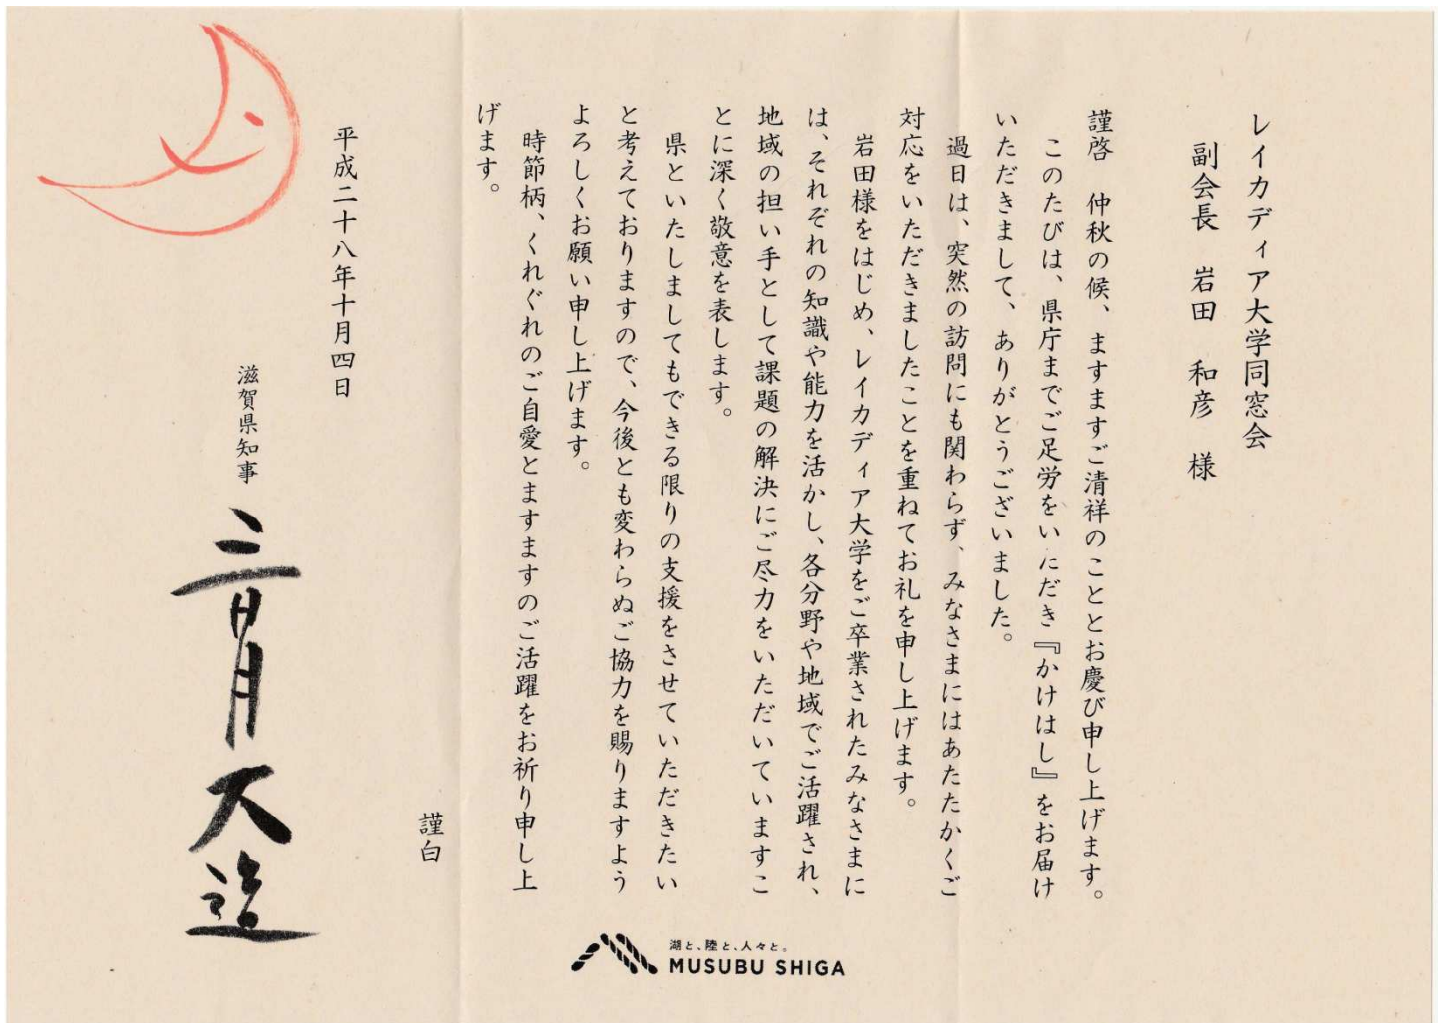 レイカディア大学同窓会
副会長　岩田　和彦　様
謹啓　仲秋の候、ますますご清祥のこととお慶び申し上げます。
このたびは、県庁までご足労をいただき『かけはし』をお届け
いただきまして、ありがとうございました。
過日は、突然の訪問にも関わらず、みなさまにはあたたかくご
対応をいただきましたことを重ねてお礼を申し上げます。
岩田様をはじめ、レイカディア大学をご卒業されたみなさまに
は、それぞれの知識や能力を活かし、各分野や地域でご活躍され、
地域の担い手として課題の解決にご尽力をいただいていますこ
とに深く敬意を表します。
県といたしましてもできる限りの支援をさせていただきたい
と考えておりますので、今後とも変わらぬご協力を賜りますよう
よろしくお願い申し上げます。
時節柄、くれぐれのご自愛とますますのご活躍をお祈り申し上
げます。
謹白
平成二十八年十月四日
滋賀県知事　三日月大造
湖と、陸と、人々と。
MUSUBU SHIGA